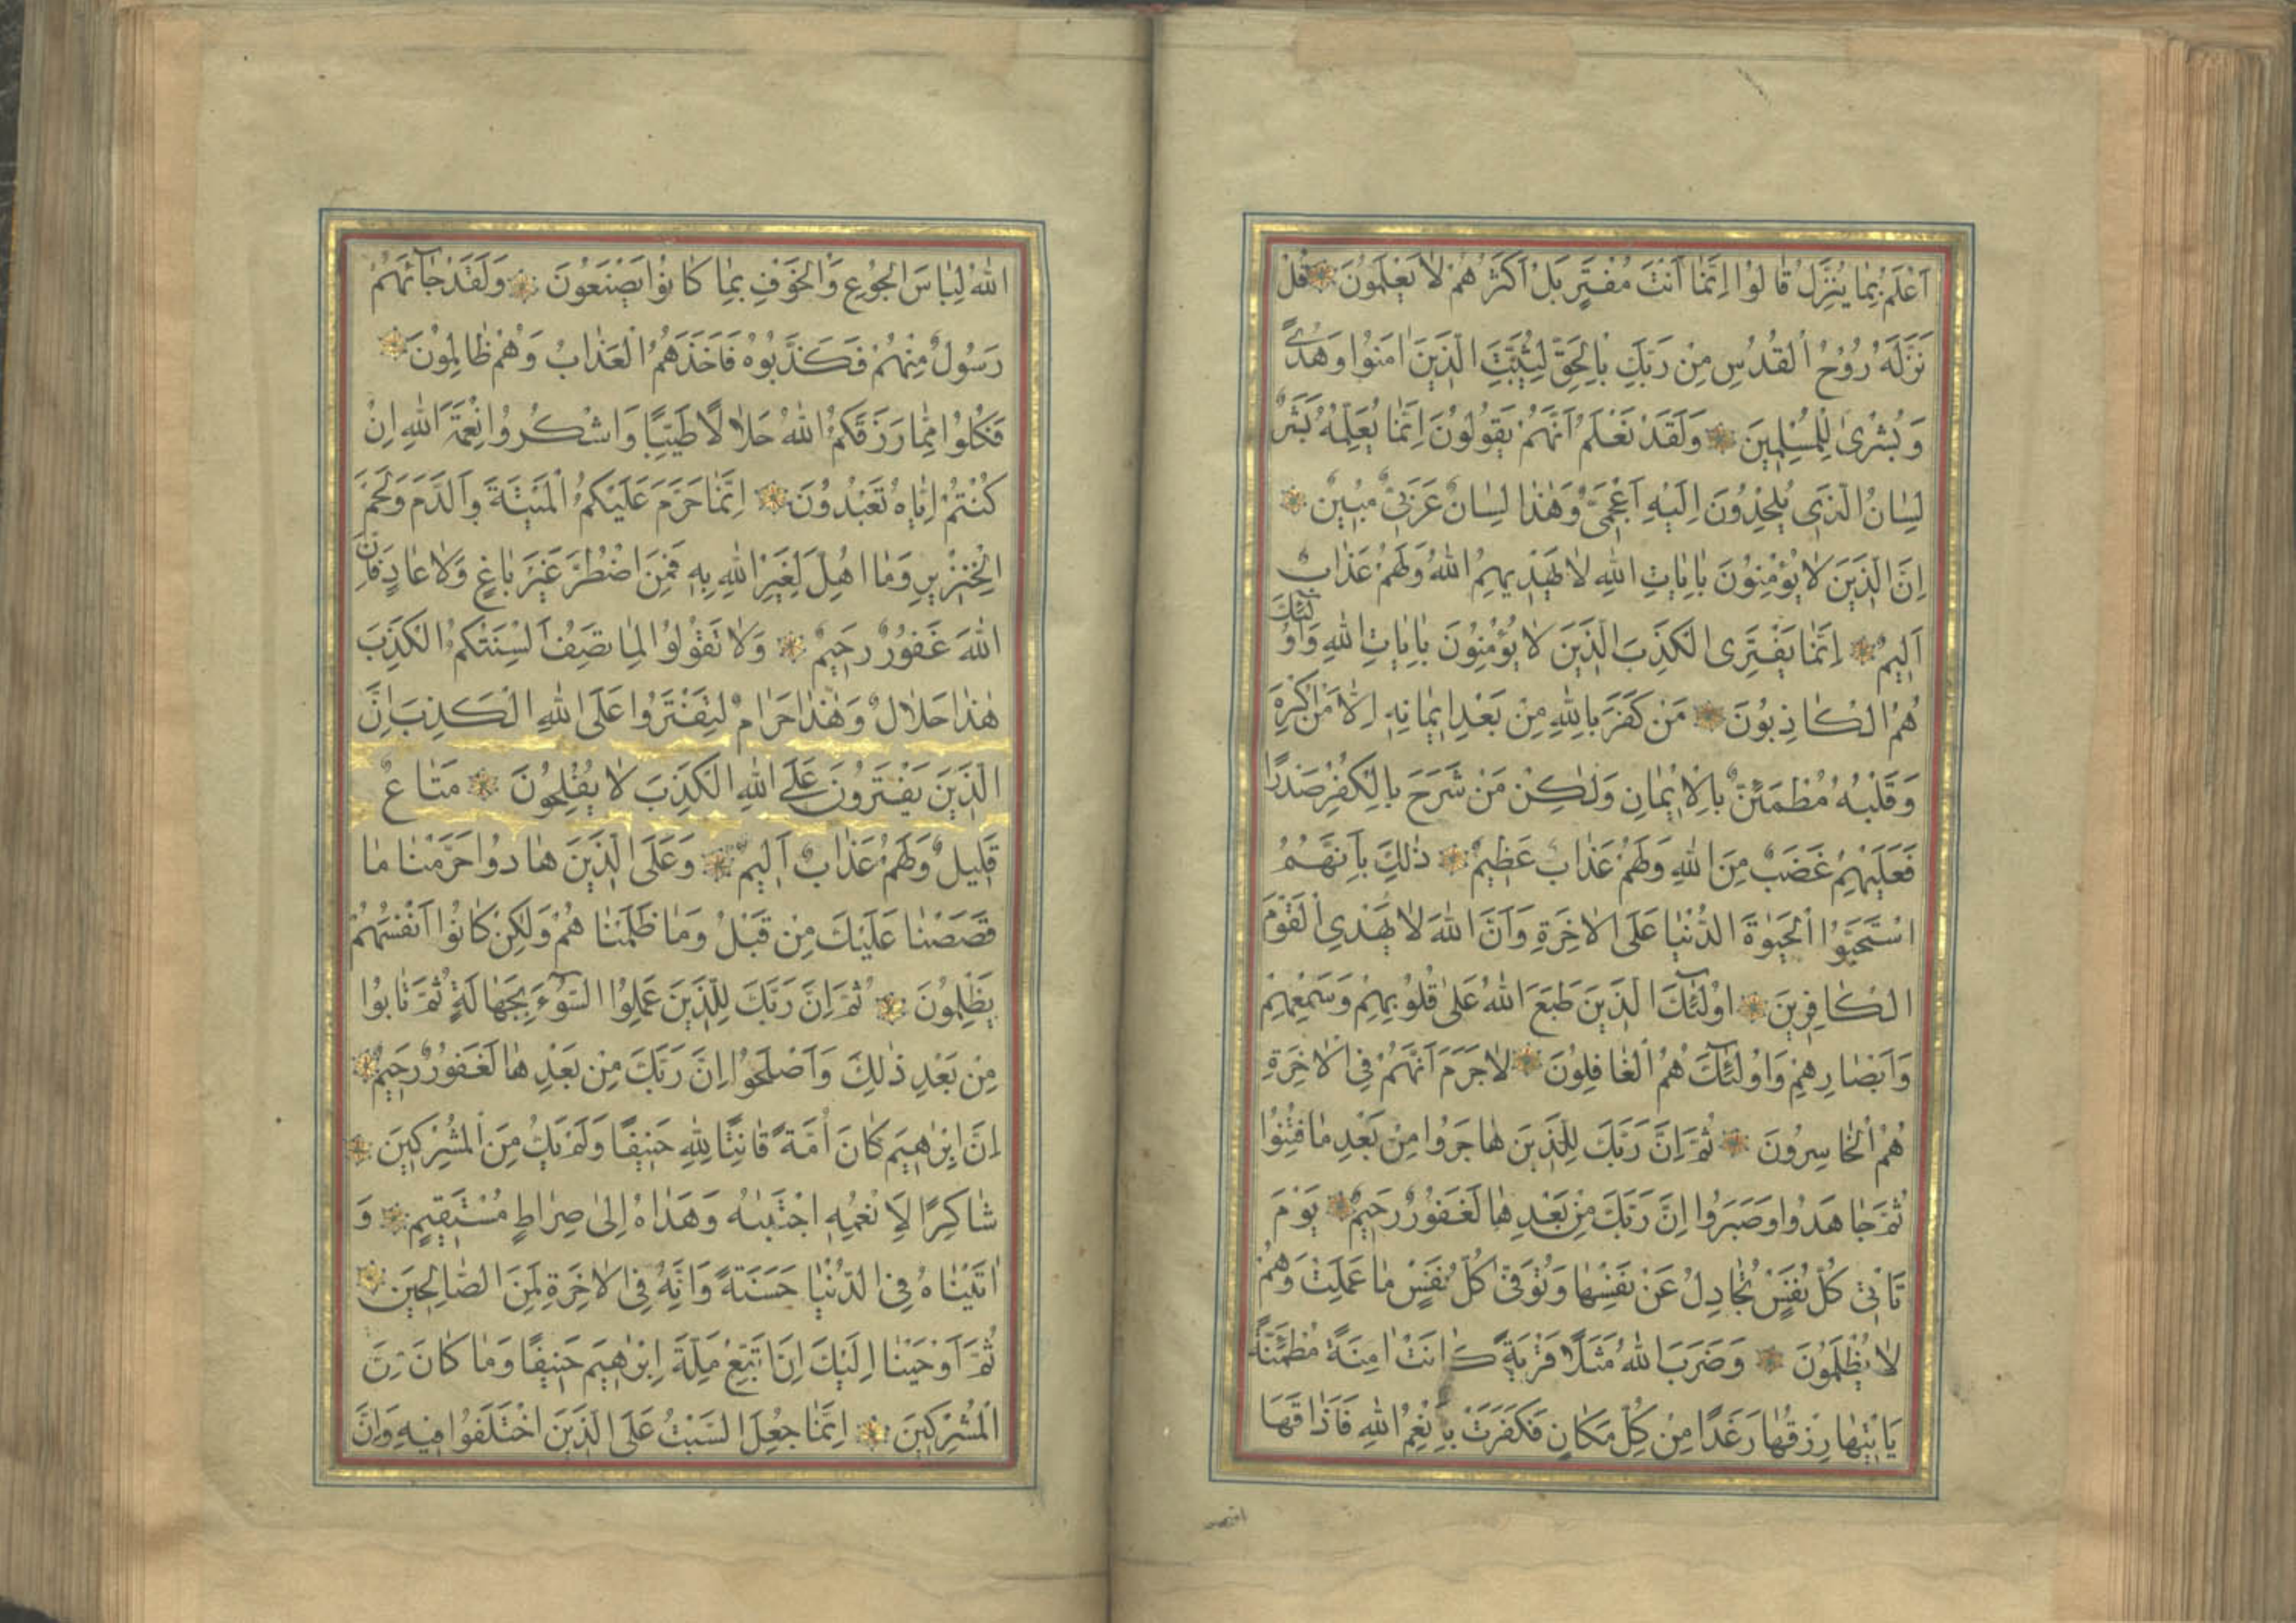 اَعْلَمُ بِمَا يُنَزِّلُ قَالُوا اِنَّمَا اَنْتَ مُفْتَرٍ بَلْ اَكْثَرُهُمْ لَا يَعْلَمُونَ قُلْ
نَزَّلَهُ رُوحُ الْقُدُسِ مِنْ رَبِّكَ بِالْحَقِّ لِيُثَبِّتَ الَّذِينَ اٰمَنُوا وَهُدًى
وَبُشْرٰى لِلْمُسْلِمِينَ وَلَقَدْ نَعْلَمُ اَنَّهُمْ يَقُولُونَ اِنَّمَا يُعَلِّمُهُ بَشَرٌ
لِسَانُ الَّذِي يُلْحِدُونَ اِلَيْهِ اَعْجَمِيٌّ وَهٰذَا لِسَانٌ عَرَبِيٌّ مُبِينٌ
اِنَّ الَّذِينَ لَا يُؤْمِنُونَ بِاٰيَاتِ اللّٰهِ لَا يَهْدِيهِمُ اللّٰهُ وَلَهُمْ عَذَابٌ
اَلِيمٌ اِنَّمَا يَفْتَرِى الْكَذِبَ الَّذِينَ لَا يُؤْمِنُونَ بِاٰيَاتِ اللّٰهِ وَاُولٰٓئِكَ
هُمُ الْكَاذِبُونَ مَنْ كَفَرَ بِاللّٰهِ مِنْ بَعْدِ اِيمَانِهِ اِلَّا مَنْ اُكْرِهَ
وَقَلْبُهُ مُطْمَئِنٌّ بِالْاِيمَانِ وَلٰكِنْ مَنْ شَرَحَ بِالْكُفْرِ صَدْرًا
فَعَلَيْهِمْ غَضَبٌ مِنَ اللّٰهِ وَلَهُمْ عَذَابٌ عَظِيمٌ ذٰلِكَ بِاَنَّهُمُ
اسْتَحَبُّوا الْحَيٰوةَ الدُّنْيَا عَلَى الْاٰخِرَةِ وَاَنَّ اللّٰهَ لَا يَهْدِى الْقَوْمَ
الْكَافِرِينَ اُولٰٓئِكَ الَّذِينَ طَبَعَ اللّٰهُ عَلٰى قُلُوبِهِمْ وَسَمْعِهِمْ
وَاَبْصَارِهِمْ وَاُولٰٓئِكَ هُمُ الْغَافِلُونَ لَا جَرَمَ اَنَّهُمْ فِى الْاٰخِرَةِ
هُمُ الْخَاسِرُونَ ثُمَّ اِنَّ رَبَّكَ لِلَّذِينَ هَاجَرُوا مِنْ بَعْدِ مَا فُتِنُوا
ثُمَّ جَاهَدُوا وَصَبَرُوا اِنَّ رَبَّكَ مِنْ بَعْدِهَا لَغَفُورٌ رَحِيمٌ يَوْمَ
تَاْتِى كُلُّ نَفْسٍ تُجَادِلُ عَنْ نَفْسِهَا وَتُوَفّٰى كُلُّ نَفْسٍ مَا عَمِلَتْ وَهُمْ
لَا يُظْلَمُونَ وَضَرَبَ اللّٰهُ مَثَلًا قَرْيَةً كَانَتْ اٰمِنَةً مُطْمَئِنَّةً
يَاْتِيهَا رِزْقُهَا رَغَدًا مِنْ كُلِّ مَكَانٍ فَكَفَرَتْ بِاَنْعُمِ اللّٰهِ فَاَذَاقَهَا
اللّٰهُ لِبَاسَ الْجُوعِ وَالْخَوْفِ بِمَا كَانُوا يَصْنَعُونَ وَلَقَدْ جَآئَهُمْ
رَسُولٌ مِنْهُمْ فَكَذَّبُوهُ فَاَخَذَهُمُ الْعَذَابُ وَهُمْ ظَالِمُونَ
فَكُلُوا مِمَّا رَزَقَكُمُ اللّٰهُ حَلَالًا طَيِّبًا وَاشْكُرُوا نِعْمَةَ اللّٰهِ اِنْ
كُنْتُمْ اِيَّاهُ تَعْبُدُونَ اِنَّمَا حَرَّمَ عَلَيْكُمُ الْمَيْتَةَ وَالدَّمَ وَلَحْمَ
الْخِنْزِيرِ وَمَا اُهِلَّ لِغَيْرِ اللّٰهِ بِهِ فَمَنِ اضْطُرَّ غَيْرَ بَاغٍ وَلَا عَادٍ فَاِنَّ
اللّٰهَ غَفُورٌ رَحِيمٌ وَلَا تَقُولُوا لِمَا تَصِفُ اَلْسِنَتُكُمُ الْكَذِبَ
هٰذَا حَلَالٌ وَهٰذَا حَرَامٌ لِتَفْتَرُوا عَلَى اللّٰهِ الْكَذِبَ اِنَّ
الَّذِينَ يَفْتَرُونَ عَلَى اللّٰهِ الْكَذِبَ لَا يُفْلِحُونَ مَتَاعٌ
قَلِيلٌ وَلَهُمْ عَذَابٌ اَلِيمٌ وَعَلَى الَّذِينَ هَادُوا حَرَّمْنَا مَا
قَصَصْنَا عَلَيْكَ مِنْ قَبْلُ وَمَا ظَلَمْنَاهُمْ وَلٰكِنْ كَانُوا اَنْفُسَهُمْ
يَظْلِمُونَ ثُمَّ اِنَّ رَبَّكَ لِلَّذِينَ عَمِلُوا السُّوٓءَ بِجَهَالَةٍ ثُمَّ تَابُوا
مِنْ بَعْدِ ذٰلِكَ وَاَصْلَحُوا اِنَّ رَبَّكَ مِنْ بَعْدِهَا لَغَفُورٌ رَحِيمٌ
اِنَّ اِبْرٰهِيمَ كَانَ اُمَّةً قَانِتًا لِلّٰهِ حَنِيفًا وَلَمْ يَكُ مِنَ الْمُشْرِكِينَ
شَاكِرًا لِاَنْعُمِهِ اجْتَبٰيهُ وَهَدَاهُ اِلٰى صِرَاطٍ مُسْتَقِيمٍ وَ
اٰتَيْنَاهُ فِى الدُّنْيَا حَسَنَةً وَاِنَّهُ فِى الْاٰخِرَةِ لَمِنَ الصَّالِحِينَ
ثُمَّ اَوْحَيْنَا اِلَيْكَ اَنِ اتَّبِعْ مِلَّةَ اِبْرٰهِيمَ حَنِيفًا وَمَا كَانَ مِنَ
الْمُشْرِكِينَ اِنَّمَا جُعِلَ السَّبْتُ عَلَى الَّذِينَ اخْتَلَفُوا فِيهِ وَاِنَّ